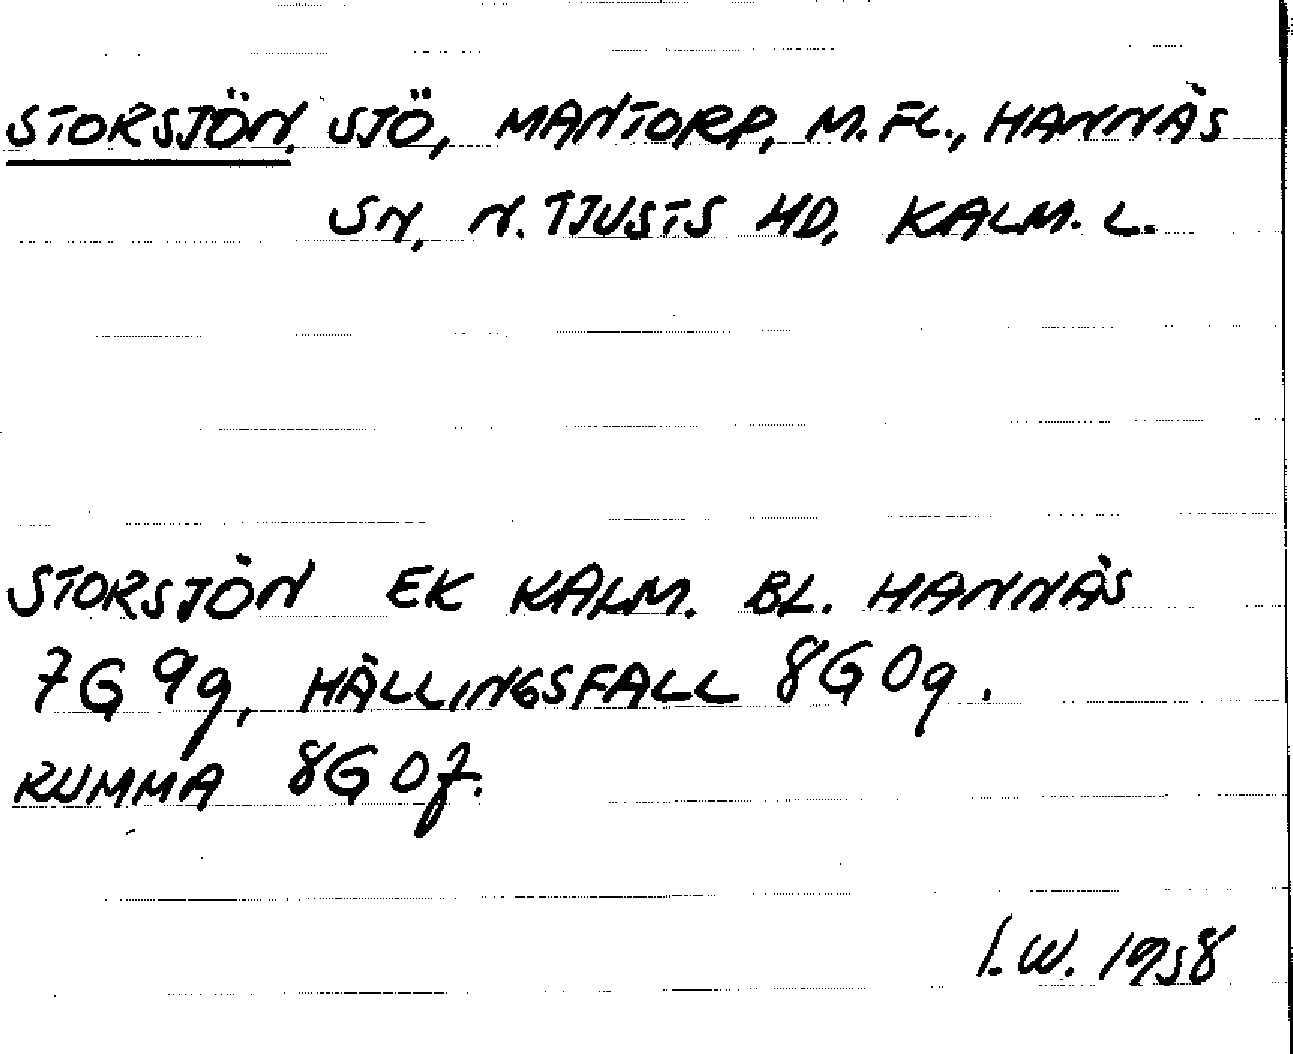 STORSJÖN, SJÖ, MANTORP, M.FL., HANNÄS
SN, N. TJUSTS HD, KALM. L.
STORSJÖN EK KALM. BL. HANNÄS
7G 9g, HÄLLINGSFALL 8G 0g.
RUMMA 8G 0f.
I.W. 1958